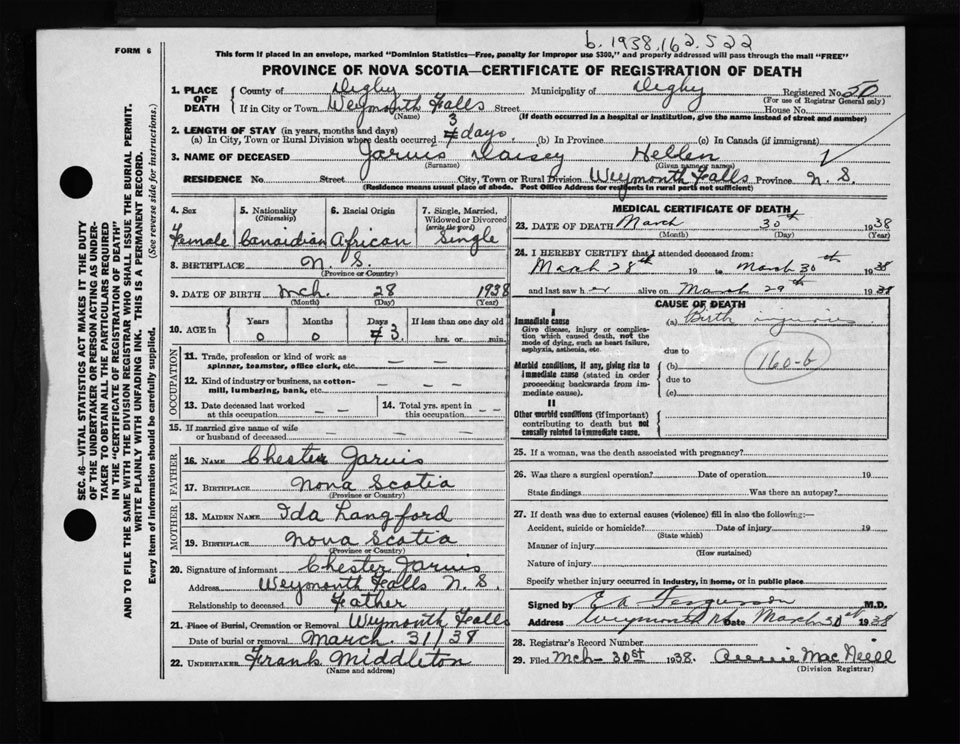 b. 1938.162.522
FORM 6
This form if placed in an envelope, marked "Dominion Statistics—Free, penalty for improper use $300," and properly addressed will pass through the mail "FREE"
PROVINCE OF NOVA SCOTIA—CERTIFICATE OF REGISTRATION OF DEATH
SEC. 46—VITAL STATISTICS ACT MAKES IT THE DUTY
OF THE UNDERTAKER OR PERSON ACTING AS UNDER-
TAKER TO OBTAIN ALL THE PARTICULARS REQUIRED
IN THE "CERTIFICATE OF REGISTRATION OF DEATH"
AND TO FILE THE SAME WITH THE DIVISION REGISTRAR WHO SHALL ISSUE THE BURIAL PERMIT.
WRITE PLAINLY WITH UNFADING INK. THIS IS A PERMANENT RECORD.
Every item of information should be carefully supplied. (See reverse side for instructions.)
1. PLACE OF DEATH County of Digby Municipality of Digby Registered No. 50
(For use of Registrar General only)
If in City or Town Weymouth Falls Street House No.
(Name) (If death occurred in a hospital or institution, give the name instead of street and number)
2. LENGTH OF STAY (in years, months and days)
(a) In City, Town or Rural Division where death occurred 3 days (b) In Province (c) In Canada (if immigrant)
3. NAME OF DECEASED Jarvis Daisey Hellen
(Surname) (Given name or names)
RESIDENCE No. Street City, Town or Rural Division Weymouth Falls Province N. S.
(Residence means usual place of abode. Post Office Address for residents in rural parts not sufficient)
4. Sex 5. Nationality (Citizenship) 6. Racial Origin 7. Single, Married, Widowed or Divorced (write the word)
Female Canaidian African Single
8. BIRTHPLACE N. S.
(Province or Country)
9. DATE OF BIRTH Mch. 28 1938
(Month) (Day) (Year)
10. AGE IN Years Months Days If less than one day old
0 0 3 hrs. or min.
OCCUPATION
11. Trade, profession or kind of work as spinner, teamster, office clerk, etc. — —
12. Kind of industry or business, as cotton-mill, lumbering, bank, etc. — — —
13. Date deceased last worked at this occupation — — 14. Total yrs. spent in this occupation — —
15. If married give name of wife or husband of deceased — —
FATHER
16. NAME Chester Jarvis
17. BIRTHPLACE Nova Scotia
(Province or Country)
MOTHER
18. MAIDEN NAME Ida Langford
19. BIRTHPLACE Nova Scotia
(Province or Country)
20. Signature of informant Chester Jarvis
Address Weymouth Falls N. S.
Relationship to deceased Father
21. Place of Burial, Cremation or Removal Weymouth Falls
Date of burial or removal March. 31/38
22. UNDERTAKER Frank Middleton
(Name and address)
MEDICAL CERTIFICATE OF DEATH
23. DATE OF DEATH March 30th 1938
(Month) (Day) (Year)
24. I HEREBY CERTIFY that I attended deceased from:
March 28th 19 to March 30th 1938
and last saw her alive on March 29th 1938
CAUSE OF DEATH
I
Immediate cause (a) Birth injuries
Give disease, injury or complication which caused death, not the mode of dying, such as heart failure, asphyxia, asthenia, etc.
due to
160-b
Morbid conditions, if any, giving rise to immediate cause (stated in order proceeding backwards from immediate cause). (b)
due to
(c)
II
Other morbid conditions (if important) contributing to death but not causally related to immediate cause.
25. If a woman, was the death associated with pregnancy?
26. Was there a surgical operation? Date of operation 19
State findings Was there an autopsy?
27. If death was due to external causes (violence) fill in also the following:—
Accident, suicide or homicide? Date of injury 19
(State which)
Manner of injury
(How sustained)
Nature of injury
Specify whether injury occurred in industry, in home, or in public place
Signed by Ferguson M.D.
Address Weymouth Date March 30th 1938
28. Registrar's Record Number
29. Filed Mch 30st 1938. Annie MacNeill
(Division Registrar)